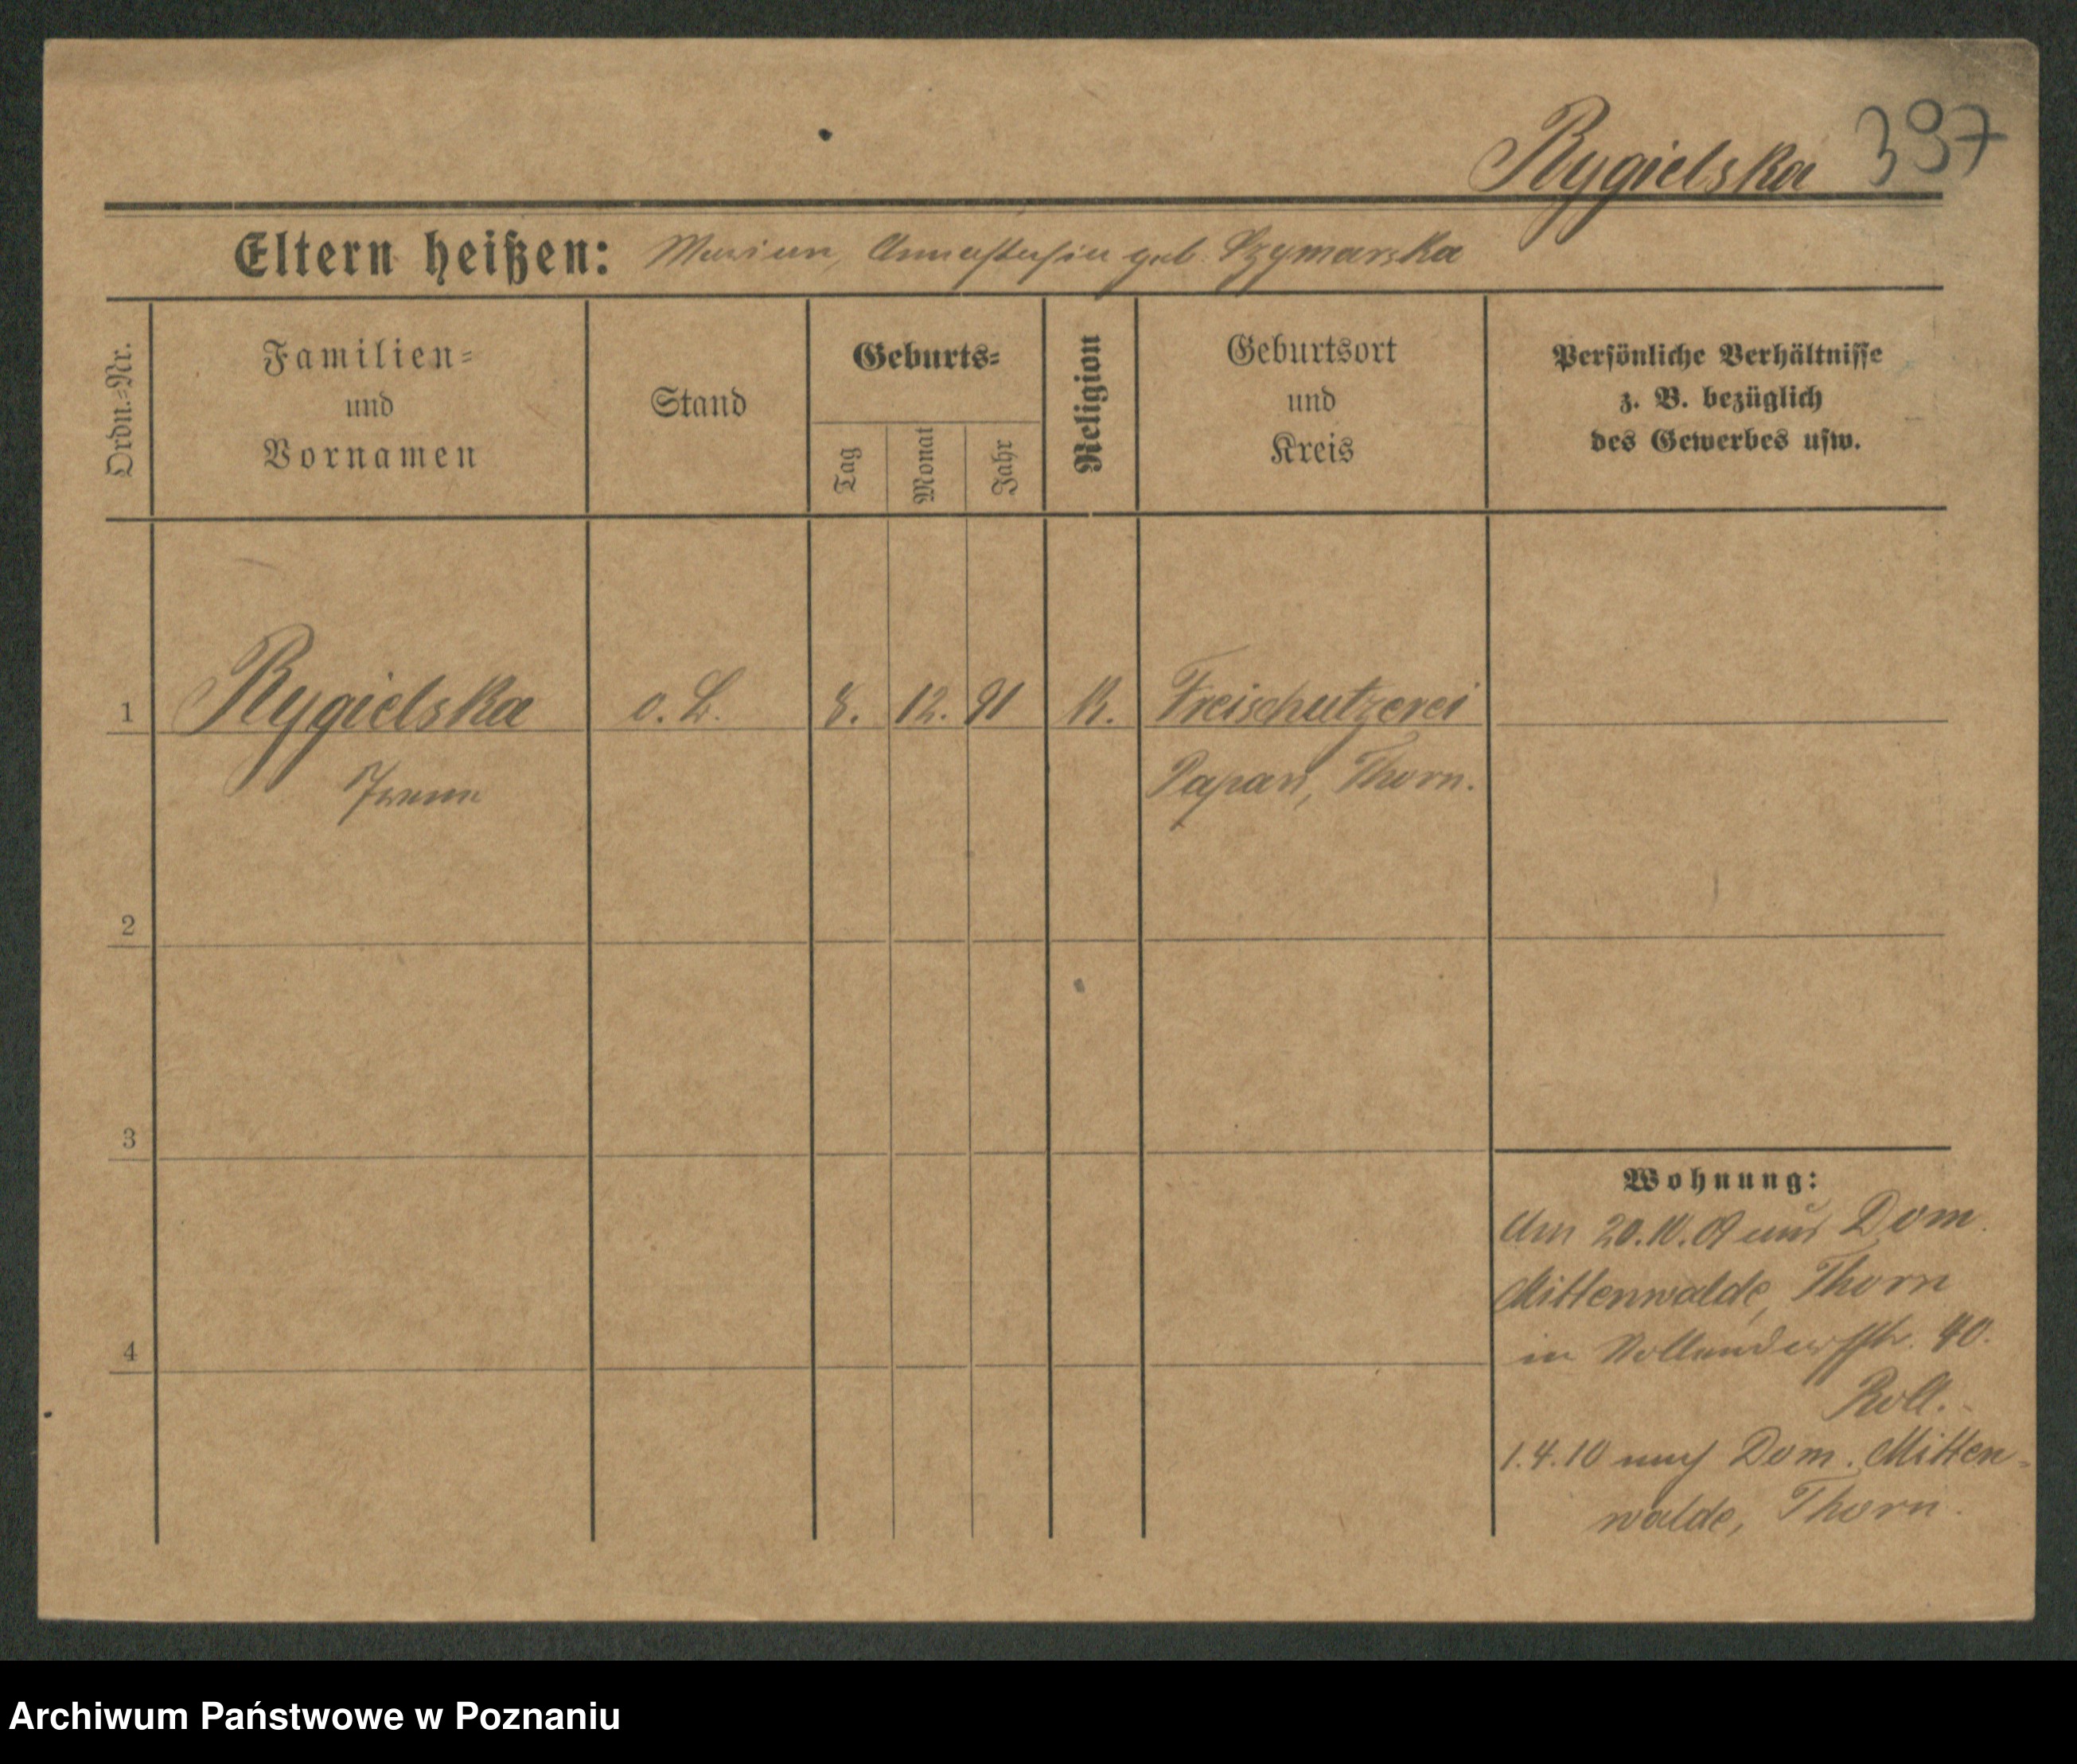 Rygielska 397
Eltern heißen: Marian, Annastasia geb. Szymanska
Ordn.-Nr.
Familien-
und
Vornamen
Stand
Geburts-
Tag
Monat
Jahr
Religion
Geburtsort
und
Kreis
Persönliche Verhältnisse
z. B. bezüglich
des Gewerbes usw.
1 Rygielska o. B. 8. 12. 91 K. Freischulzerei
Papau, Thorn.
2
3
Wohnung:
Am 20.10.09 aus Dom.
Mittenwalde, Thorn
in 40.
4
1.4.10 nach Dom. Mitten-
walde, Thorn.
Archiwum Państwowe w Poznaniu